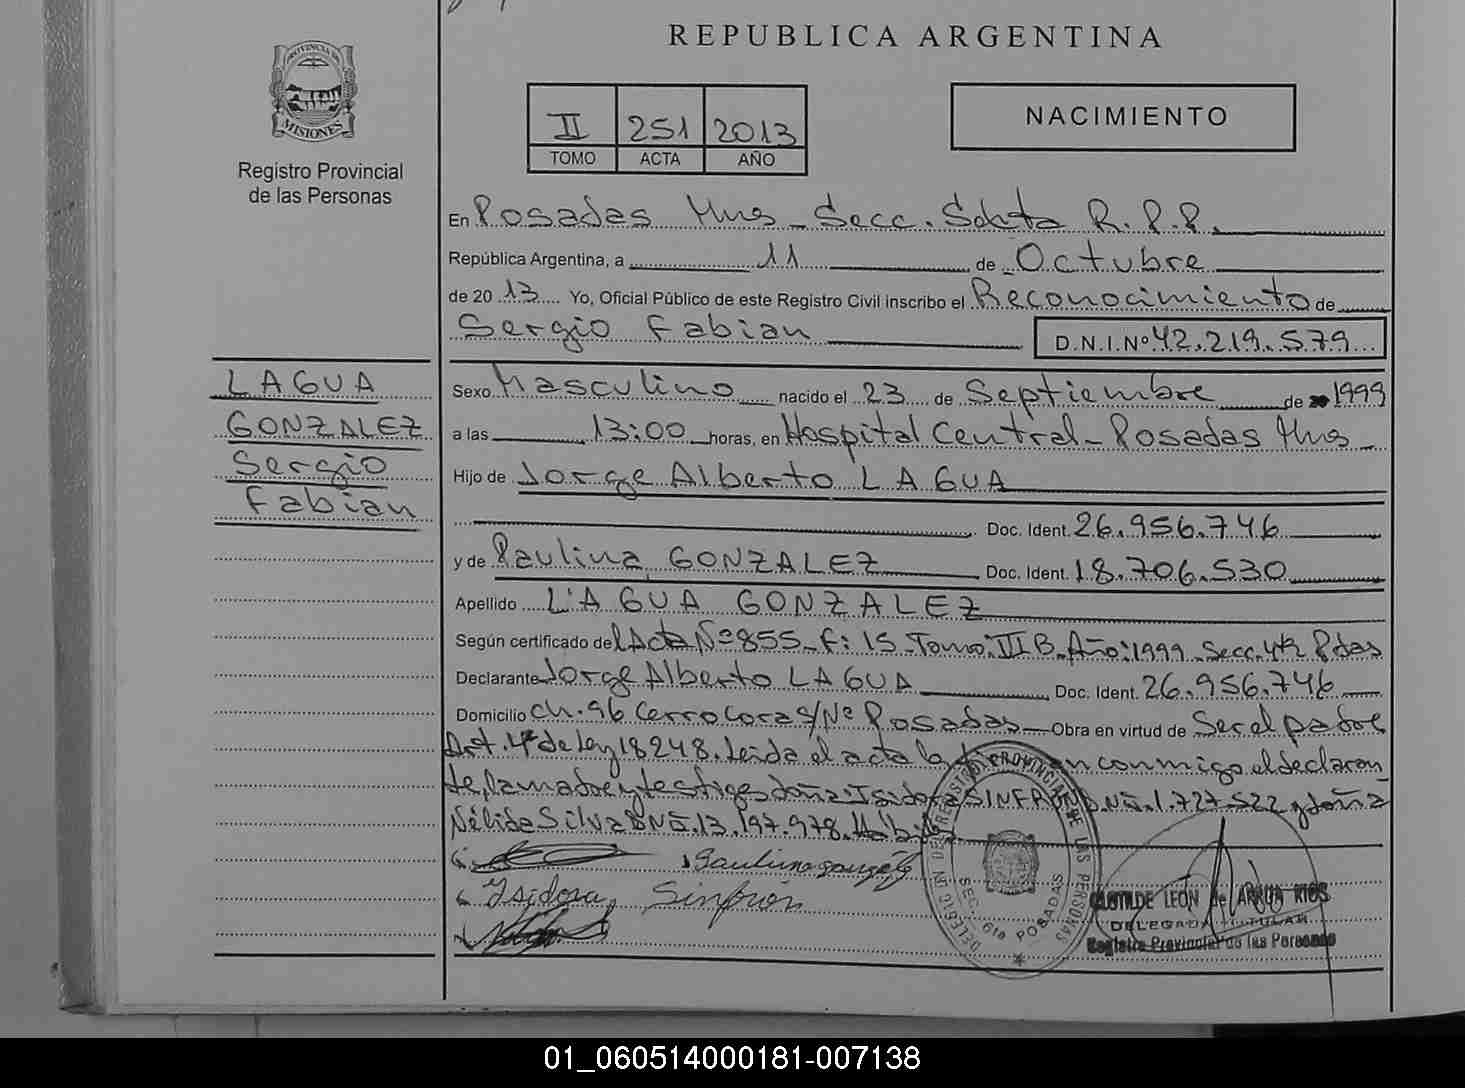 REPUBLICA ARGENTINA
PROVINCIA DE
MISIONES
Registro Provincial
de las Personas
II 251 2013
TOMO ACTA AÑO
NACIMIENTO
En Posadas Mnes - Secc. Sexta R.P.P.
República Argentina, a 11 de Octubre
de 2013 Yo, Oficial Público de este Registro Civil inscribo el Reconocimiento de
Sergio Fabian D.N.I.Nº 42.219.579
LAGUA
GONZALEZ
Sergio
Fabian
Sexo Masculino nacido el 23 de Septiembre de 1999
a las 13:00 horas, en Hospital Central - Posadas Mnes
Hijo de Jorge Alberto LAGUA
Doc. Ident. 26.956.746
y de Paulina GONZALEZ Doc. Ident. 18.706.530
Apellido LAGUA GONZALEZ
Según certificado del Acta Nº 855 - F: 15 - Tomo: III B - Año: 1999 - Secc. 4ta Pdas
Declarante Jorge Alberto LAGUA Doc. Ident. 26.956.746
Domicilio Ch. 96 Cerro Cora S/Nº Posadas - Obra en virtud de Ser el padre
Art. 4º de Ley 18248. Leida el acta la conmigo el declaran
te, la madre y testigos doña Isidora SINFRON D.N 1.727.522 y doña
Nélida Silva DNI 13.197.978.
Paulina gonzalez
Isidora Sinfrón
DELEG. Nº DEL REGISTRO PROVINCIAL DE LAS PERSONAS
SECC. 6ta POSADAS
CLOTILDE LEON de ARRUA RIOS
DELEGADA TITULAR
Registro Provincial de las Personas
01_060514000181-007138